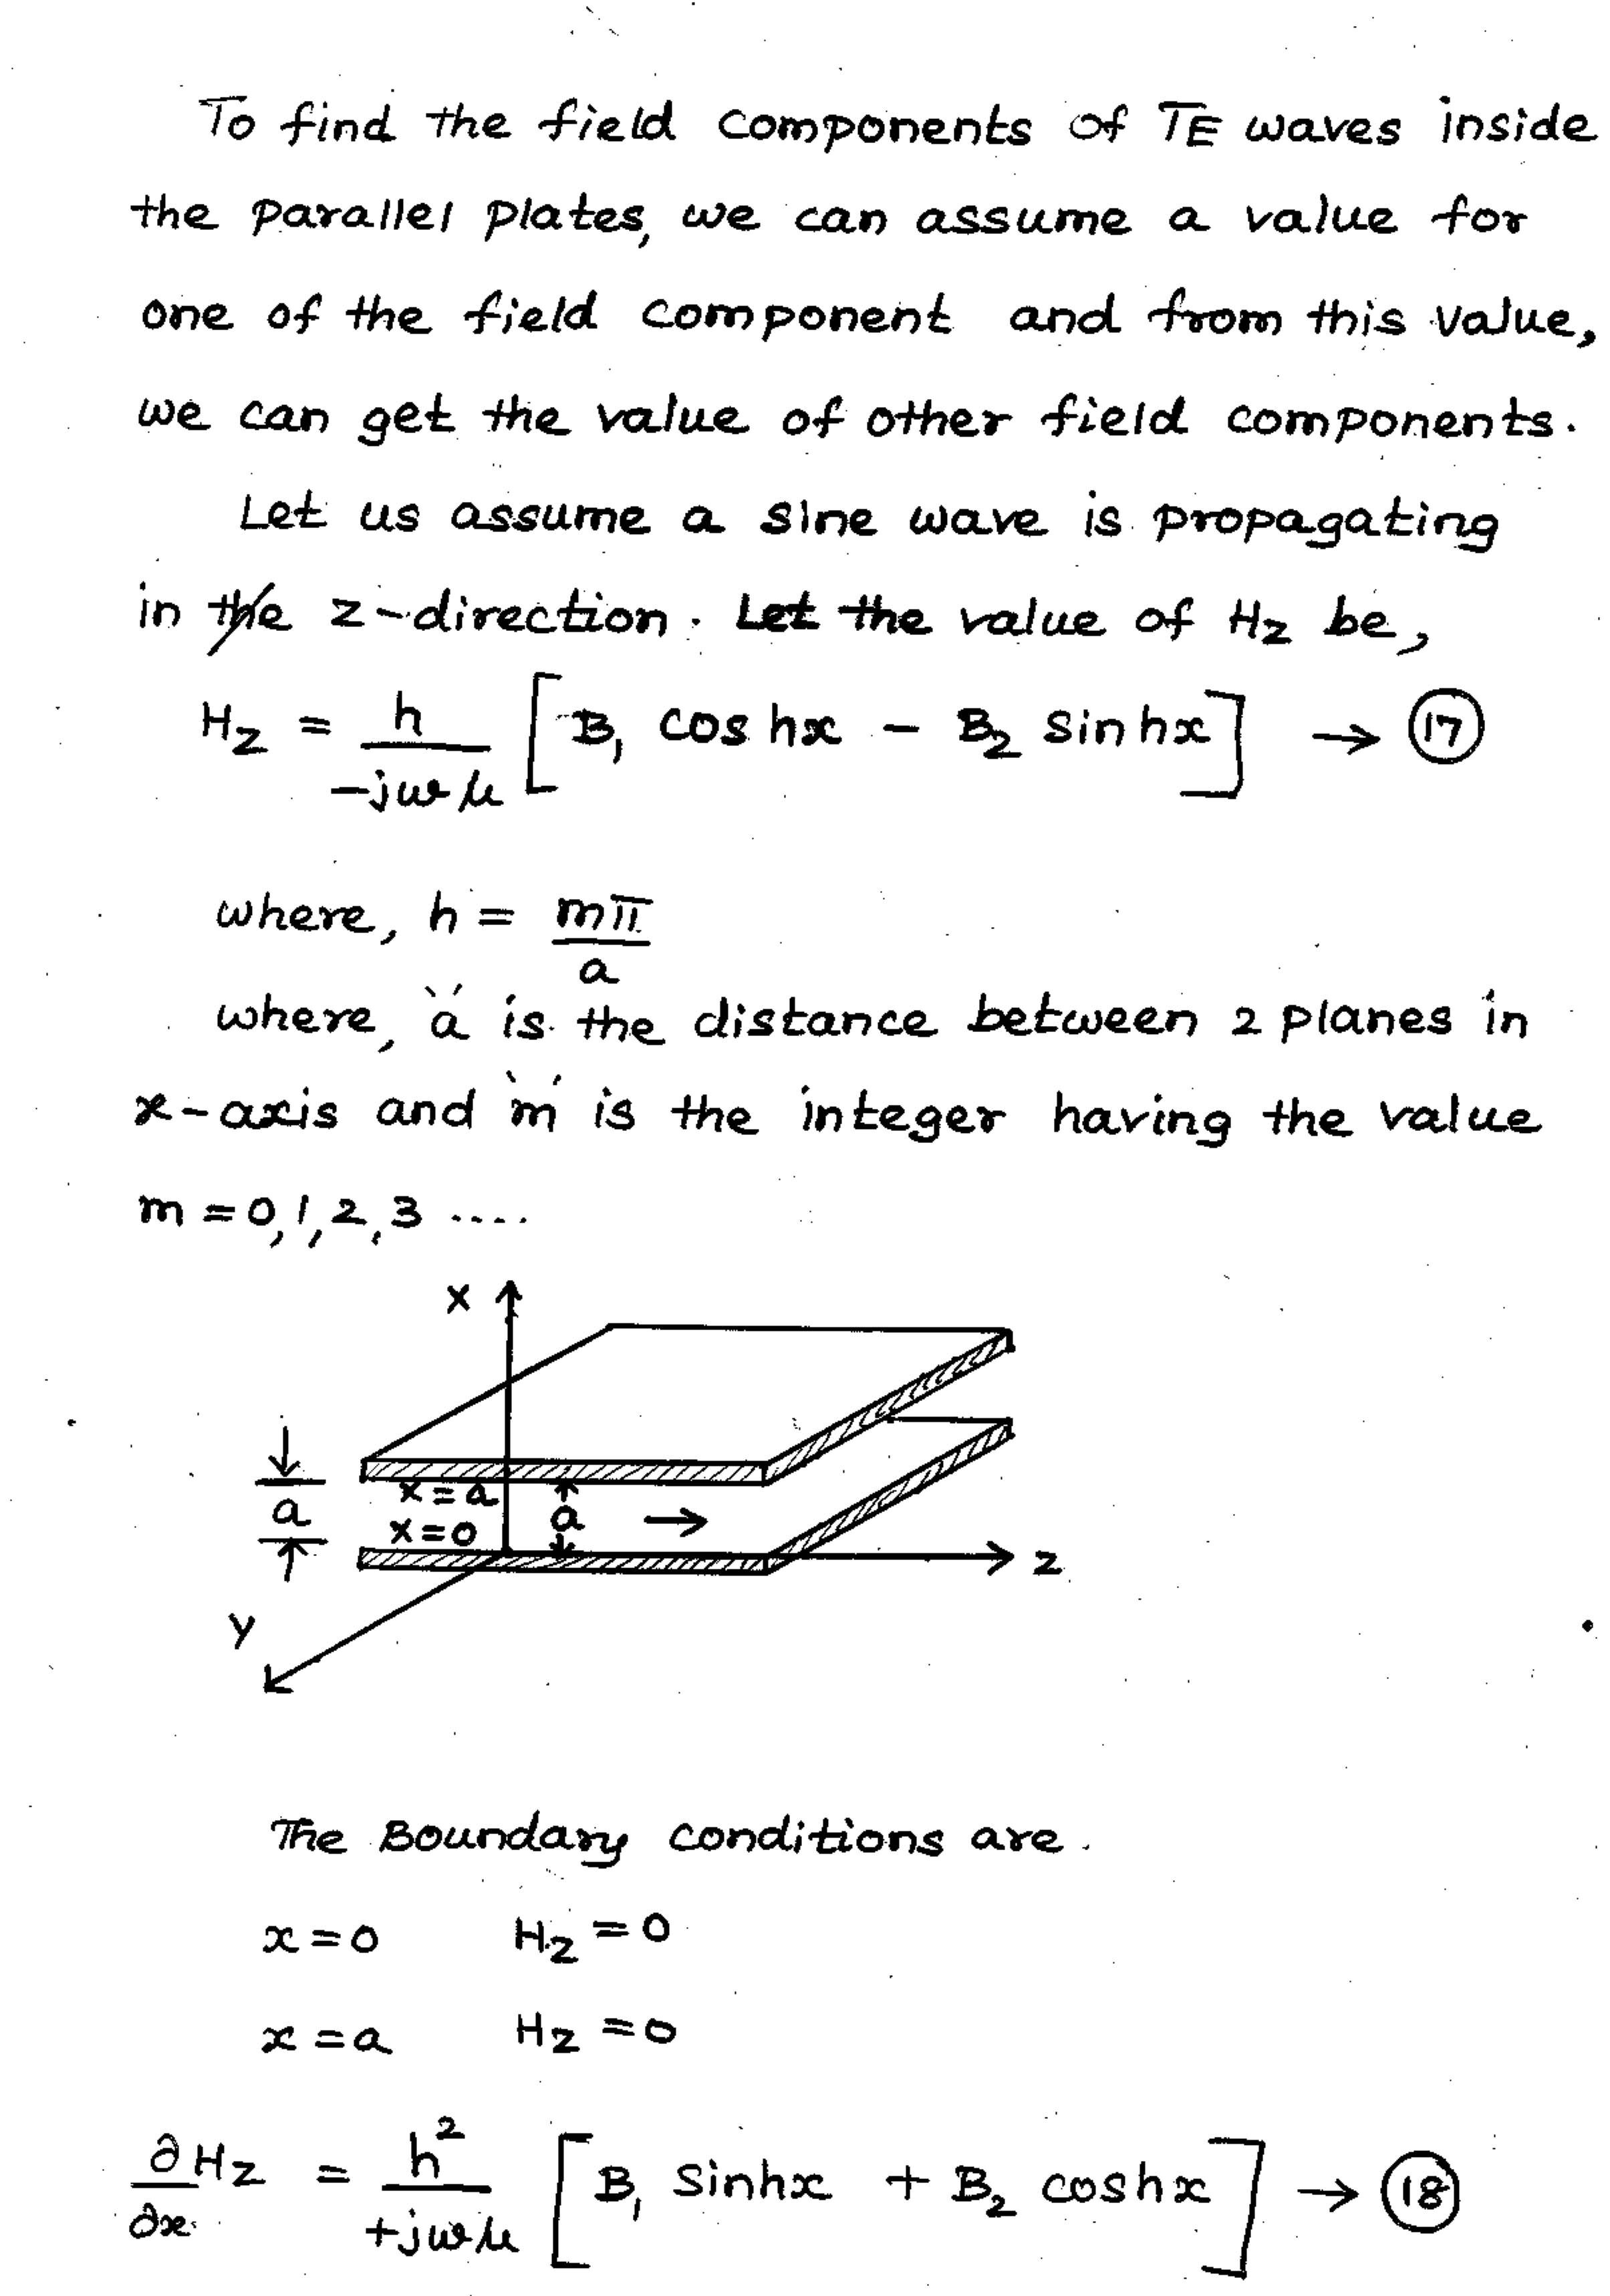 To find the field components of TE waves inside
the parallel plates, we can assume a value for
one of the field component and from this value,
we can get the value of other field components.
Let us assume a sine wave is propagating
in the z-direction. Let the value of Hz be,
Hz = h/-jωμ [B₁ cos hx - B₂ sin hx] → (17)
where, h = mπ/a
where, 'a' is the distance between 2 planes in
x-axis and 'm' is the integer having the value
m = 0, 1, 2, 3 ....
X
x = a
a
a
x = 0
z
Y
The Boundary conditions are.
x = 0 Hz = 0
x = a Hz = 0
∂Hz/∂x = h²/+jωμ [B₁ sinhx + B₂ coshx] → (18)